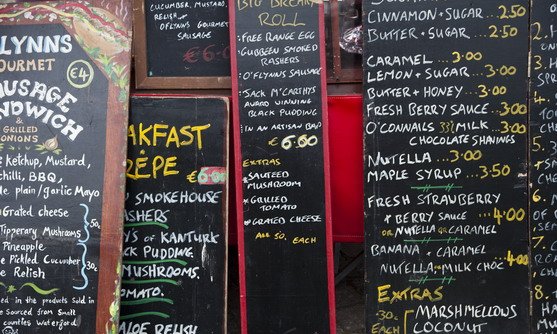 FLYNNS
GOURMET
SAUSAGE
SANDWICH
€4
& GRILLED
ONIONS
Ketchup, Mustard,
chilli, BBQ,
plain/garlic Mayo
Grated cheese
Tipperary Mushrooms
Pineapple
Pickled Cucumber
Relish
50c
in the products
Sourced from Small
counties Waterford
CUCUMBER, MUSTARD,
RELISH
O'FLYNNS GOURMET
SAUSAGE
€6
AKFAST
RÊPE
€6.00
SMOKEHOUSE
RASHERS
YS OF KANTURK
PACK PUDDING.
MUSHROOMS.
TOMATO.
ALOE RELISH
BIG BREAKY
ROLL
FREE RANGE EGG
GUBBEEN SMOKED
RASHERS
O'FLYNNS SAUSAGE
JACK M'CARTHYS
AWARD WINNING
BLACK PUDDING
IN AN ARTISAN BAP
€6.00
EXTRAS
SAUTEED
MUSHROOM
GRILLED
TOMATO
GRATED CHEESE
ALL 50c EACH
CINNAMON + SUGAR ... 2.50
BUTTER + SUGAR ... 2.50
CARAMEL ... 3.00
LEMON + SUGAR ... 3.00
BUTTER + HONEY ... 3.00
FRESH BERRY SAUCE ... 3.00
O'CONNAILS 33% MILK ... 3.00
CHOCOLATE SHAVINGS
NUTELLA ... 3.00
MAPLE SYRUP ... 3.50
FRESH STRAWBERRY
+ BERRY SAUCE ... 4.00
OR NUTELLA OR CARAMEL
BANANA + CARAMEL
NUTELLA OR MILK CHOC ... 4.00
EXTRAS
MARSHMELLOWS
COCONUT